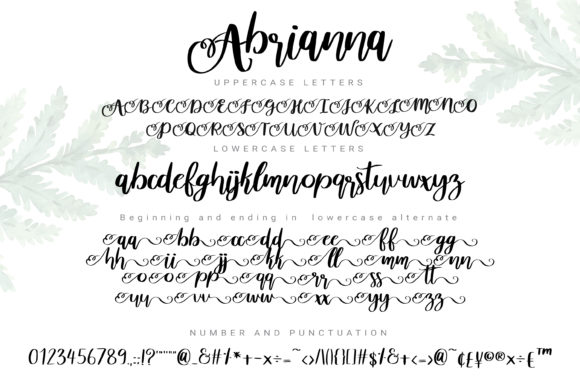 Abrianna
UPPERCASE LETTERS
ABCDEFGHIJKLMNO
PQRSTUVWXYZ
LOWERCASE LETTERS
abcdefghijklmnopqrstuvwxyz
Beginning and ending in lowercase alternate
aa bb cc dd ee ff gg
hh ii jj kk ll mm nn
oo pp qq rr ss tt
uu vv ww xx yy zz
NUMBER AND PUNCTUATION
0123456789.,:;!?'"'""@_&#%*+-×÷=~<>/\()[]{}|#$%&+<=>@~¢£¥©®×÷€™